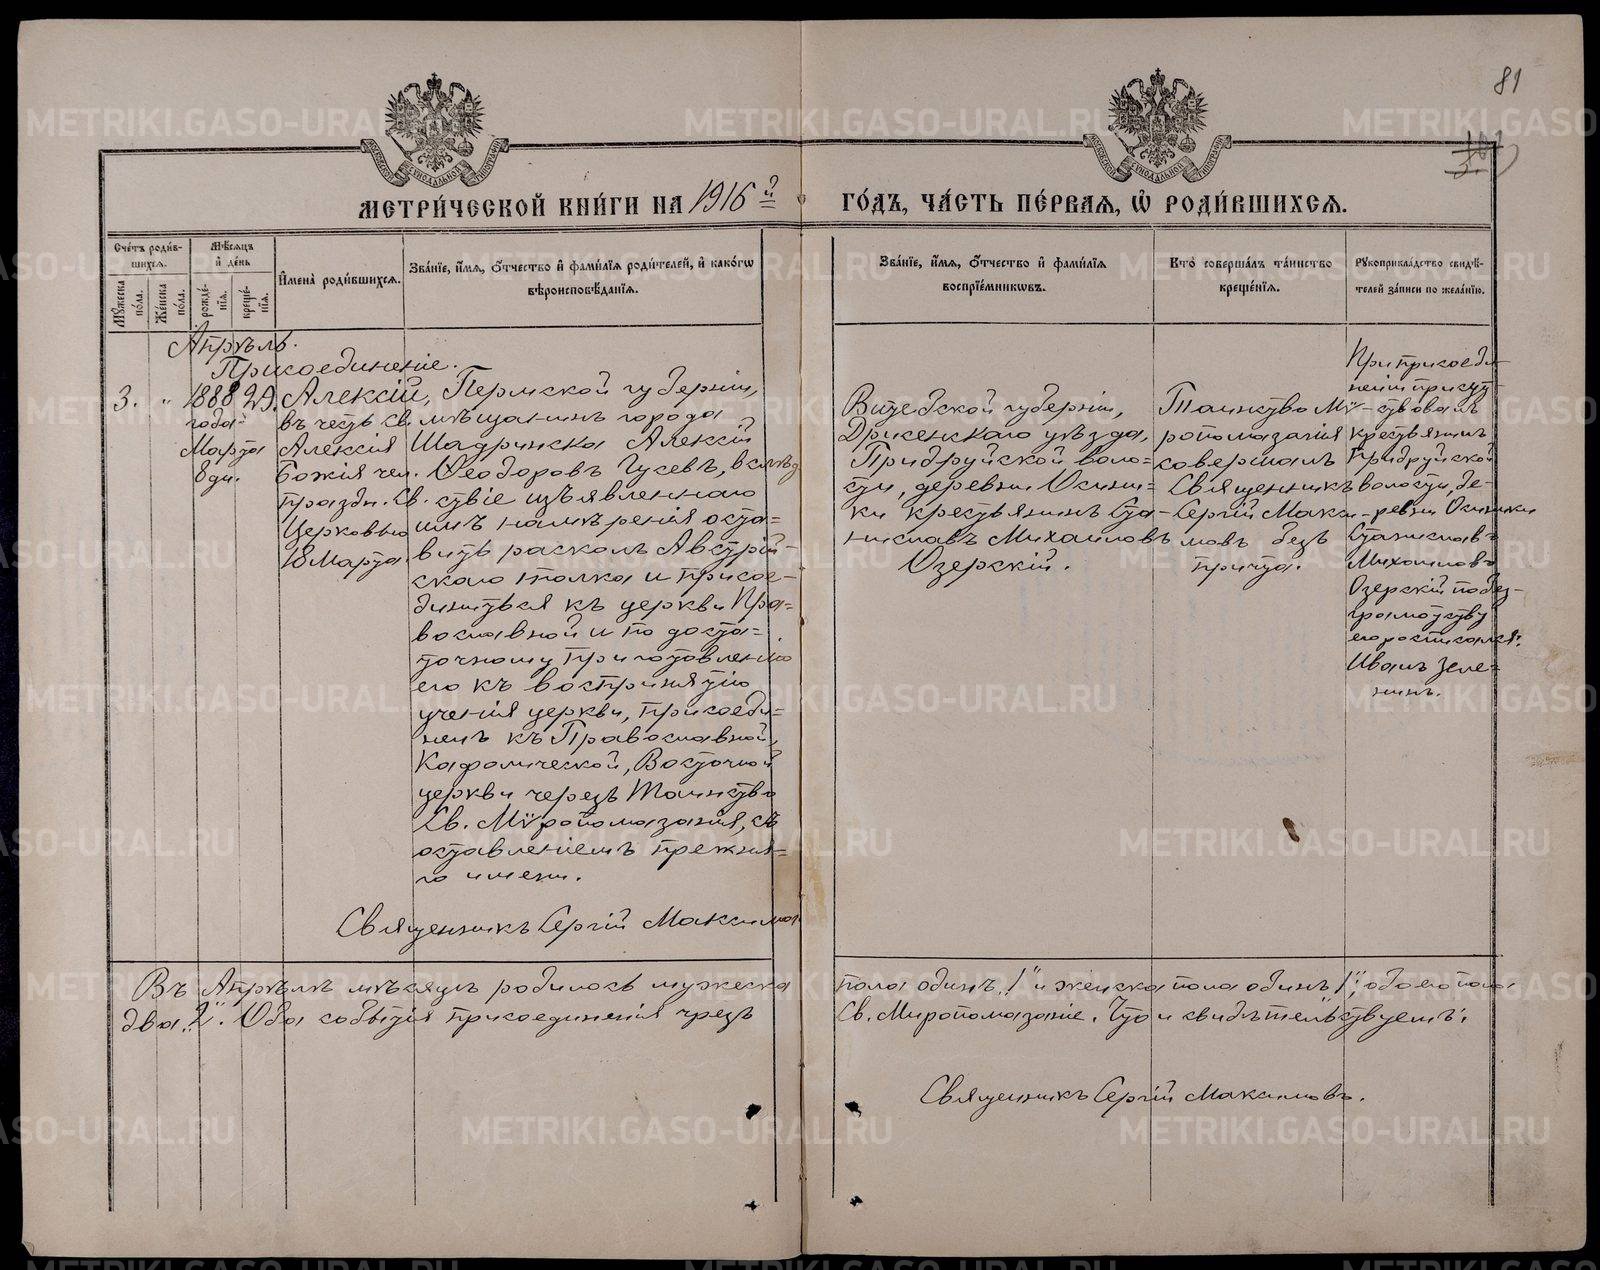 81
МЕТРИ́ЧЕСКОЙ КНИ́ГИ НА 1916й ГО́ДЪ, ЧА́СТЬ ПЕ́РВАЯ, Ѡ РОДИ́ВШИХСЯ.
Сче́тъ роди́в-
шихся.
Му́жеска по́ла.
Же́нска по́ла.
Мѣ́сяцъ
и҆ де́нь
рожде́-
нїя.
креще́-
нїя.
И҆мена̀ роди́вшихся.
Зва́нїе, и҆́мя, ѻ҆́тчество и҆ фами́лїя роди́телей, и҆ како́гѡ
вѣроисповѣ́данїя.
Зва́нїе, и҆́мя, ѻ҆́тчество и҆ фами́лїя
воспрїе́мникѡвъ.
Кто̀ соверша́лъ та́инство
креще́нїя.
Рꙋкоприкла́дство свидѣ́-
телей за́писи по жела́нїю.
Апрѣль.
Присоединеніе.
3.
"
1888
года
Марта
8 дн.
20.
Алексій,
въ честь св.
Алексія
Божія чел.
праздн. Св.
Церковью
18 Марта.
Пермской губерніи,
мѣщанинъ города
Шадринска Алексій
Ѳеодоровъ Гусевъ, вслѣд
ствіе изъявленнаго
имъ намѣренія оста=
вить расколъ Австрій-
скаго толка и присое-
диниться къ церкви Пра=
вославной и по доста=
точному приготовленію
его къ воспринятію
ученія церкви, присоеди=
ненъ къ Православной,
Каѳолической, Восточной
церкви черезъ Таинство
Св. Мѵропомазанія, съ
оставленіемъ прежня=
го имени.
Священникъ Сергій Максимов
Витебской губерніи,
Дрисенскаго уѣзда,
Придруйской воло=
сти, деревни Осини=
ки крестьянинъ Ста-
ниславъ Михаиловъ
Озерскій.
Таинство Мѵ-
ропомазанія
совершалъ
Священникъ
Сергій Макси-
мовъ безъ
причта.
При присоеди-
неніи присут-
ствовалъ
крестьянинъ
Придруйской
волости, де-
ревни Осиники
Станиславъ
Михаиловъ
Озерскій по без-
грамотству
его росписался:
Иванъ Зеле=
нинъ.
Въ Апрѣлѣ мѣсяцѣ родилось мужеска пола одинъ „1" и женска пола одинъ „1", обоего пола
два „2". Оба событія присоединенія чрезъ Св. Миропомазаніе. Что и свидѣтельствуемъ:
Священникъ Сергій Максимовъ.
METRIKI.GASO-URAL.RU